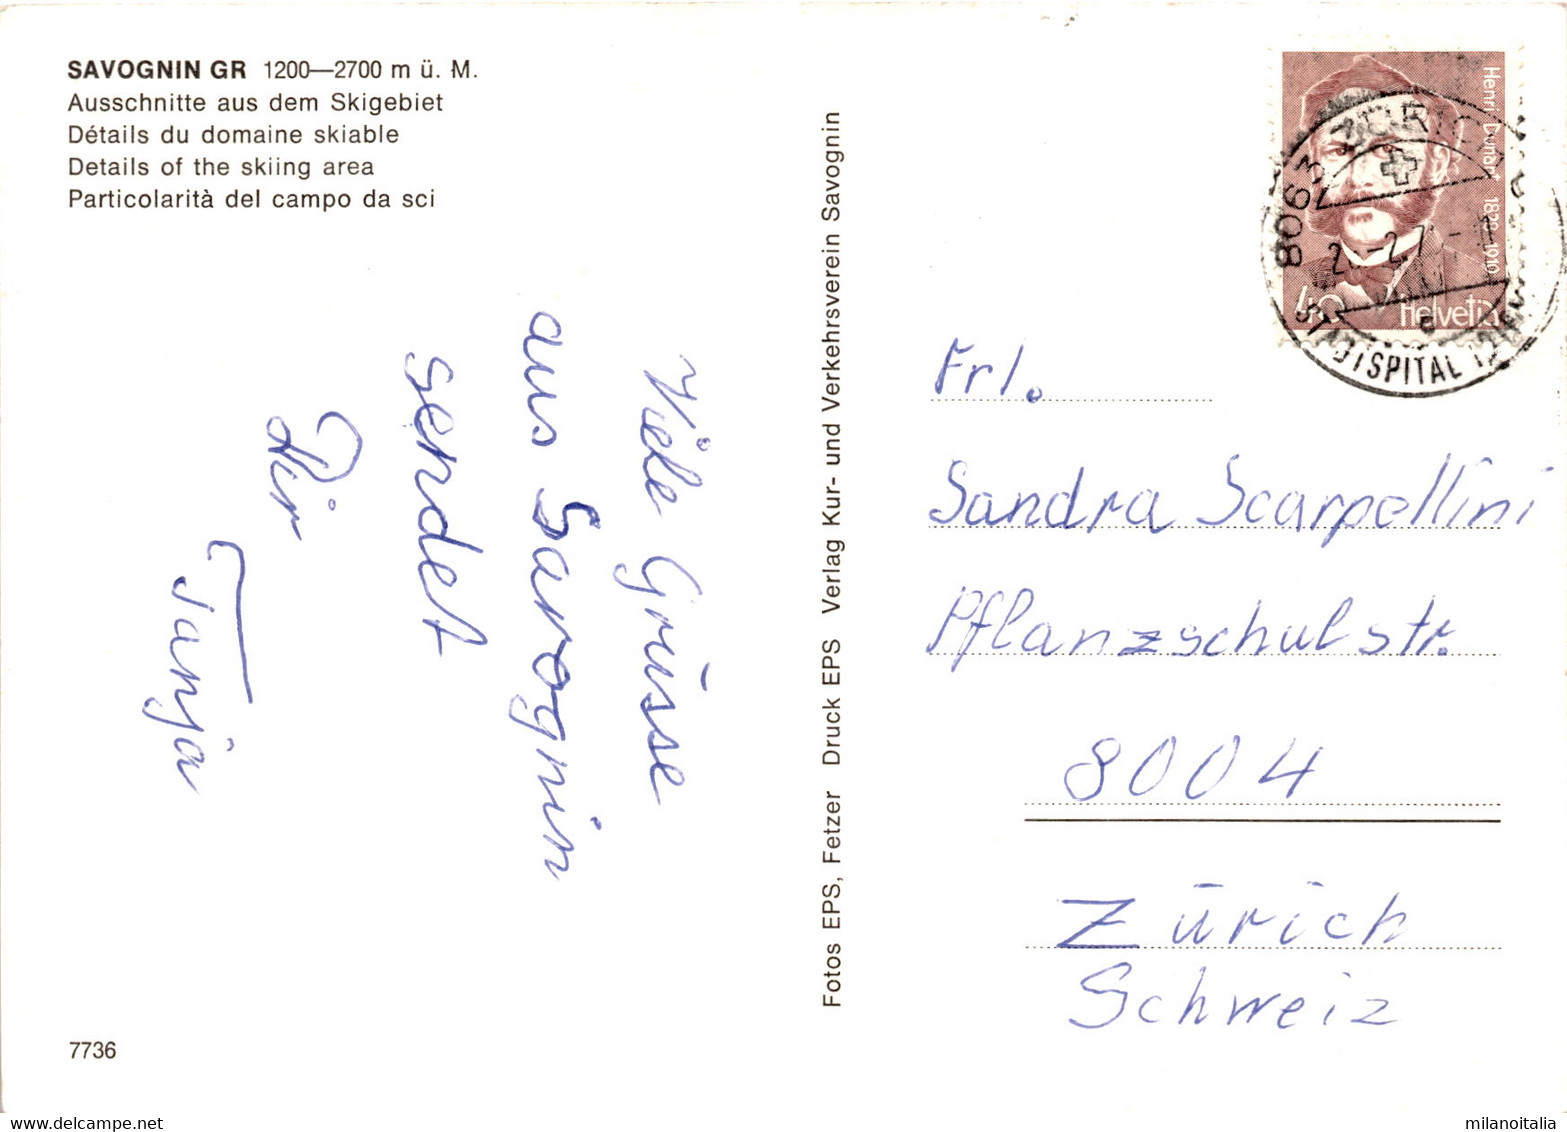 SAVOGNIN GR 1200—2700 m ü. M.
Ausschnitte aus dem Skigebiet
Détails du domaine skiable
Details of the skiing area
Particolarità del campo da sci
Viele Grüsse
aus Savognin
sendet
Dir
Tanja
7736
Fotos EPS, Fetzer Druck EPS Verlag Kur- und Verkehrsverein Savognin
Henri Dunant 1828-1910
40 Helvetia
8063 ZÜRICH
STADTSPITAL
Frl.
Sandra Scarpellini
Pflanzschulstr.
8004
Zürich
Schweiz
milanoitalia